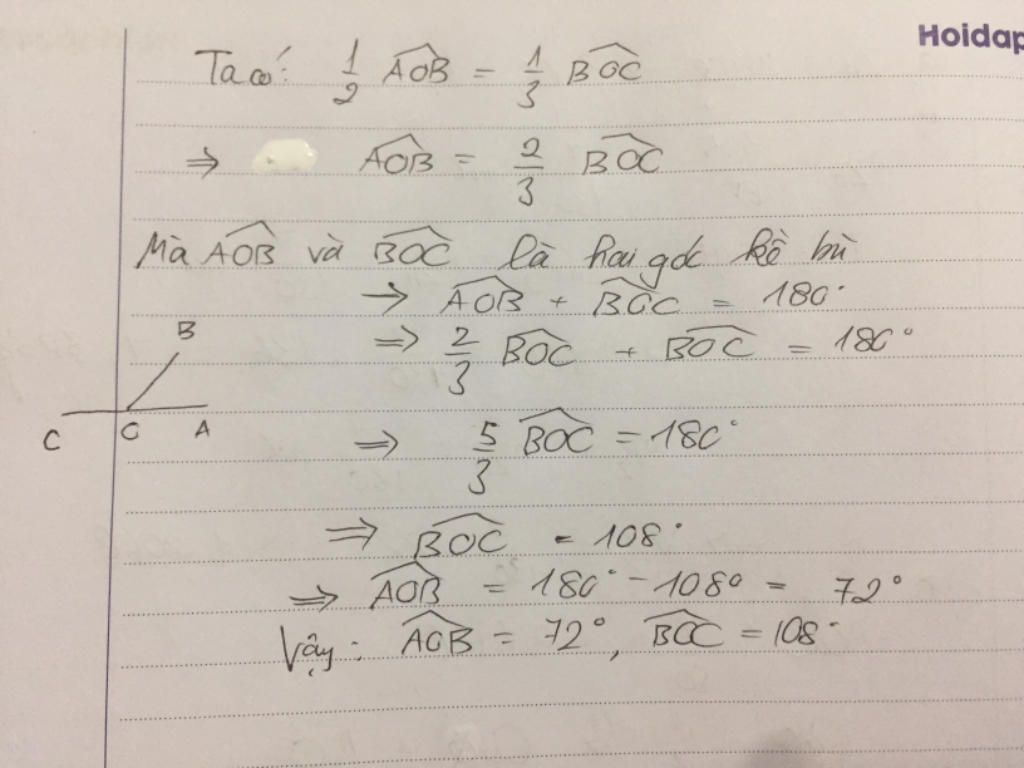 Hoidap
Ta có: 1/2 AOB = 1/3 BOC
⇒ AOB = 2/3 BOC
Mà AOB và BOC là hai góc kề bù
→ AOB + BOC = 180°
⇒ 2/3 BOC + BOC = 180°
⇒ 5/3 BOC = 180°
⇒ BOC = 108°
⇒ AOB = 180° - 108° = 72°
Vậy: AOB = 72°, BOC = 108°
B
C O A